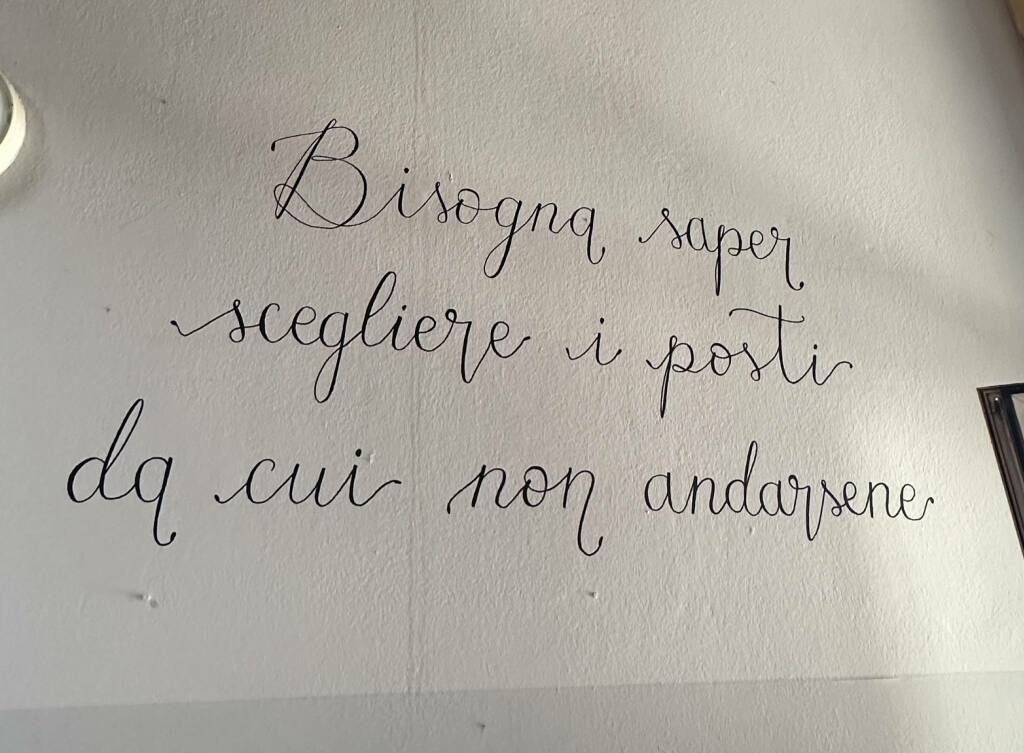 Bisogna saper
scegliere i posti
da cui non andarsene